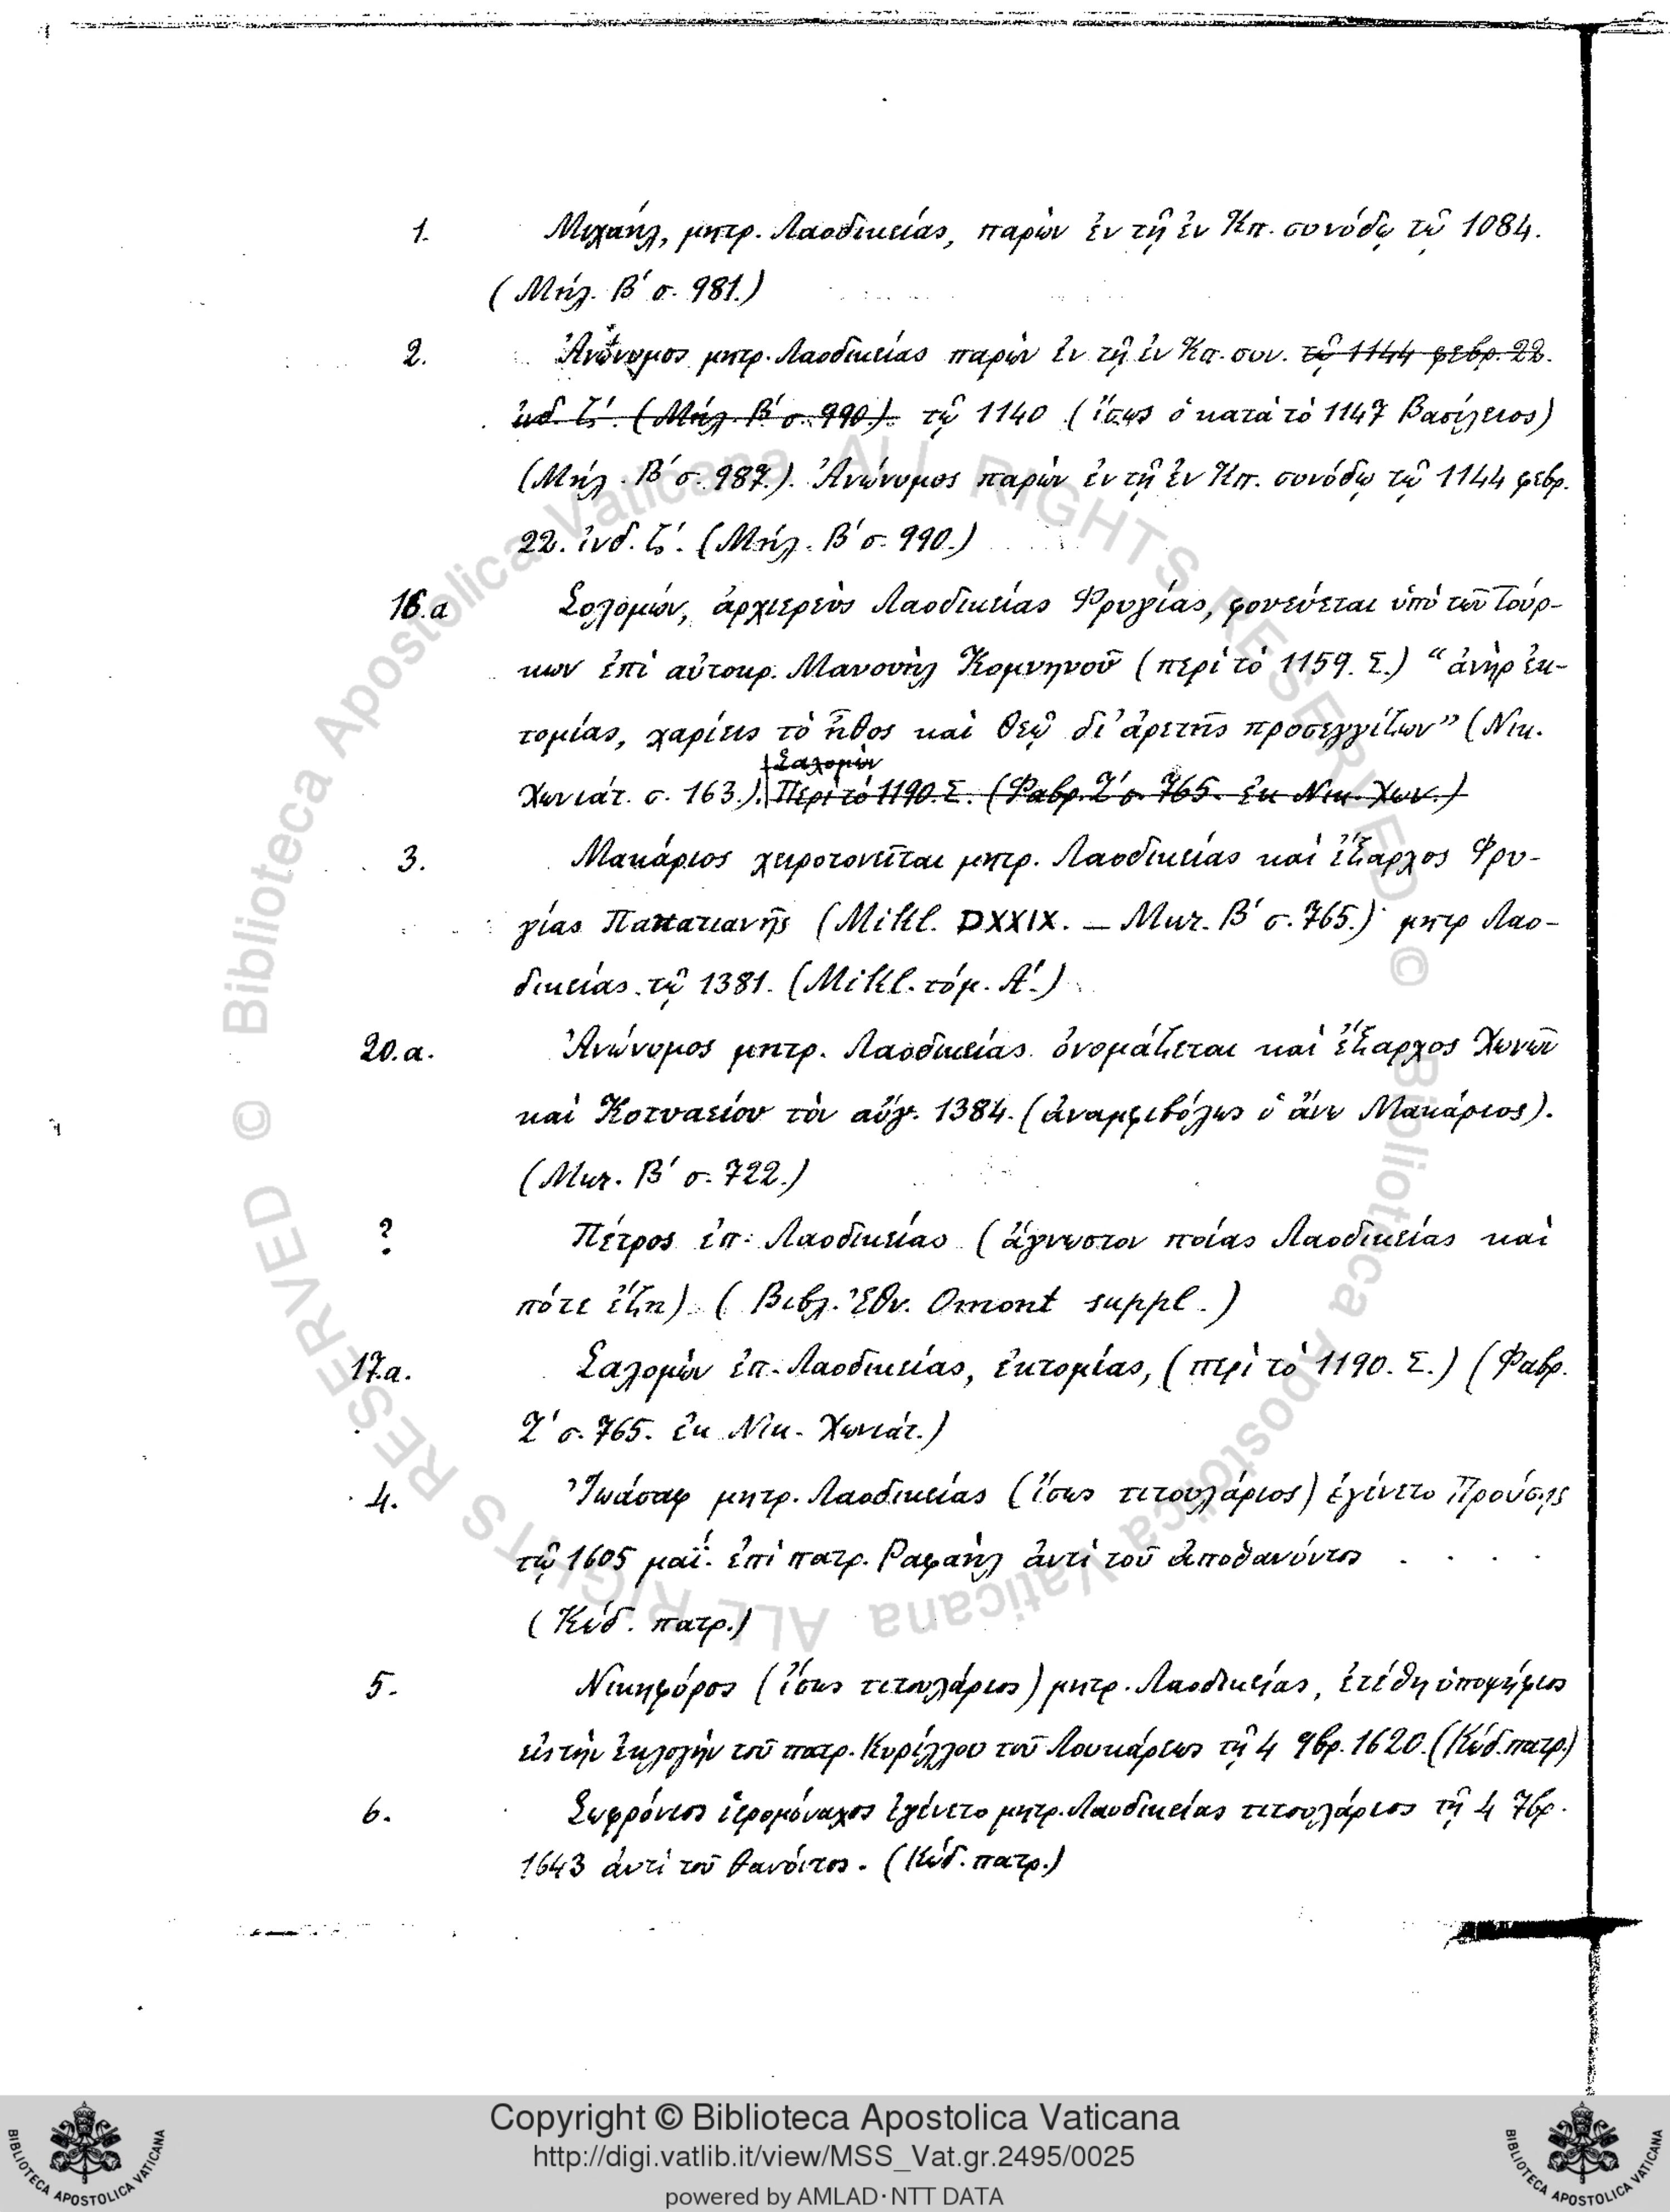 1. Μιχαήλ, μητρ. Λαοδικείας, παρὼν ἐν τῇ ἐν Κπ. συνόδῳ τῷ 1084.
(Μήλ. Β′ σ. 981.)
2. Ἀνώνυμος μητρ. Λαοδικείας παρὼν ἐν τῇ ἐν Κπ. συν. τῷ 1144 φεβρ. 22.
ἰνδ. ζ′. (Μήλ. Β′ σ. 990.) τῷ 1140 (ἴσως ὁ κατὰ τὸ 1147 Βασίλειος)
(Μήλ. Β′ σ. 987.). Ἀνώνυμος παρὼν ἐν τῇ ἐν Κπ. συνόδῳ τῷ 1144 φεβρ.
22. ἰνδ. ζ′. (Μήλ. Β′ σ. 990.)
16.a Σολομών, ἀρχιερεὺς Λαοδικείας Φρυγίας, φονεύεται ὑπὸ τῶν Τούρ-
κων ἐπὶ αὐτοκρ. Μανουὴλ Κομνηνοῦ (περὶ τὸ 1159. Σ.) “ἀνὴρ ἐκ-
τομίας, χαρίεις τὸ ἦθος καὶ θεῷ δι’ ἀρετῆς προσεγγίζων” (Νικ.
Σαλομὼν
Χωνιάτ. σ. 163.). Περὶ τὸ 1190. Σ. (Φαβρ. Ζ′ σ. 765. ἐκ Νικ. Χων.)
3. Μακάριος χειροτονεῖται μητρ. Λαοδικείας καὶ ἔξαρχος Φρυ-
γίας Πακατιανῆς (Mikl. DXXIX. — Μιγ. Β′ σ. 765.) μητρ Λαο-
δικείας τῷ 1381. (Mikl. τόμ. Α′.)
20.a. Ἀνώνυμος μητρ. Λαοδικείας ὀνομάζεται καὶ ἔξαρχος Χωνῶν
καὶ Κοτυαείου τὸν αὔγ. 1384. (ἀναμφιβόλως ὁ ἄνω Μακάριος).
(Μιγ. Β′ σ. 722.)
? Πέτρος ἐπ. Λαοδικείας (ἄγνωστον ποίας Λαοδικείας καὶ
πότε ἔζη) (Βιβλ. Ἐθν. Omont suppl.)
17.a. Σαλομὼν ἐπ. Λαοδικείας, ἐκτομίας, (περὶ τὸ 1190. Σ.) (Φαβρ.
Ζ′ σ. 765. ἐκ Νικ. Χωνιάτ.)
4. Ἰωάσαφ μητρ. Λαοδικείας (ἴσως τιτουλάριος) ἐγένετο Προύσης
τῷ 1605 μαΐ. ἐπὶ πατρ. Ραφαὴλ ἀντὶ τοῦ ἀποθανόντος . . . .
(Κώδ. πατρ.)
5. Νικηφόρος (ἴσως τιτουλάριος) μητρ. Λαοδικείας, ἐτέθη ὑποψήφιος
εἰς τὴν ἐκλογὴν τοῦ πατρ. Κυρίλλου τοῦ Λουκάρεως τῇ 4 9βρ. 1620. (Κώδ. πατρ.)
6. Σωφρόνιος ἱερομόναχος ἐγένετο μητρ. Λαοδικείας τιτουλάριος τῇ 4 7βρ.
1643 ἀντὶ τοῦ θανόντος. (Κώδ. πατρ.)
© Biblioteca Apostolica Vaticana ALL RIGHTS RESERVED © Biblioteca Apostolica Vaticana ALL RIGHTS RESERVED
Copyright © Biblioteca Apostolica Vaticana
http://digi.vatlib.it/view/MSS_Vat.gr.2495/0025
powered by AMLAD·NTT DATA
BIBLIOTECA APOSTOLICA VATICANA
BIBLIOTECA APOSTOLICA VATICANA